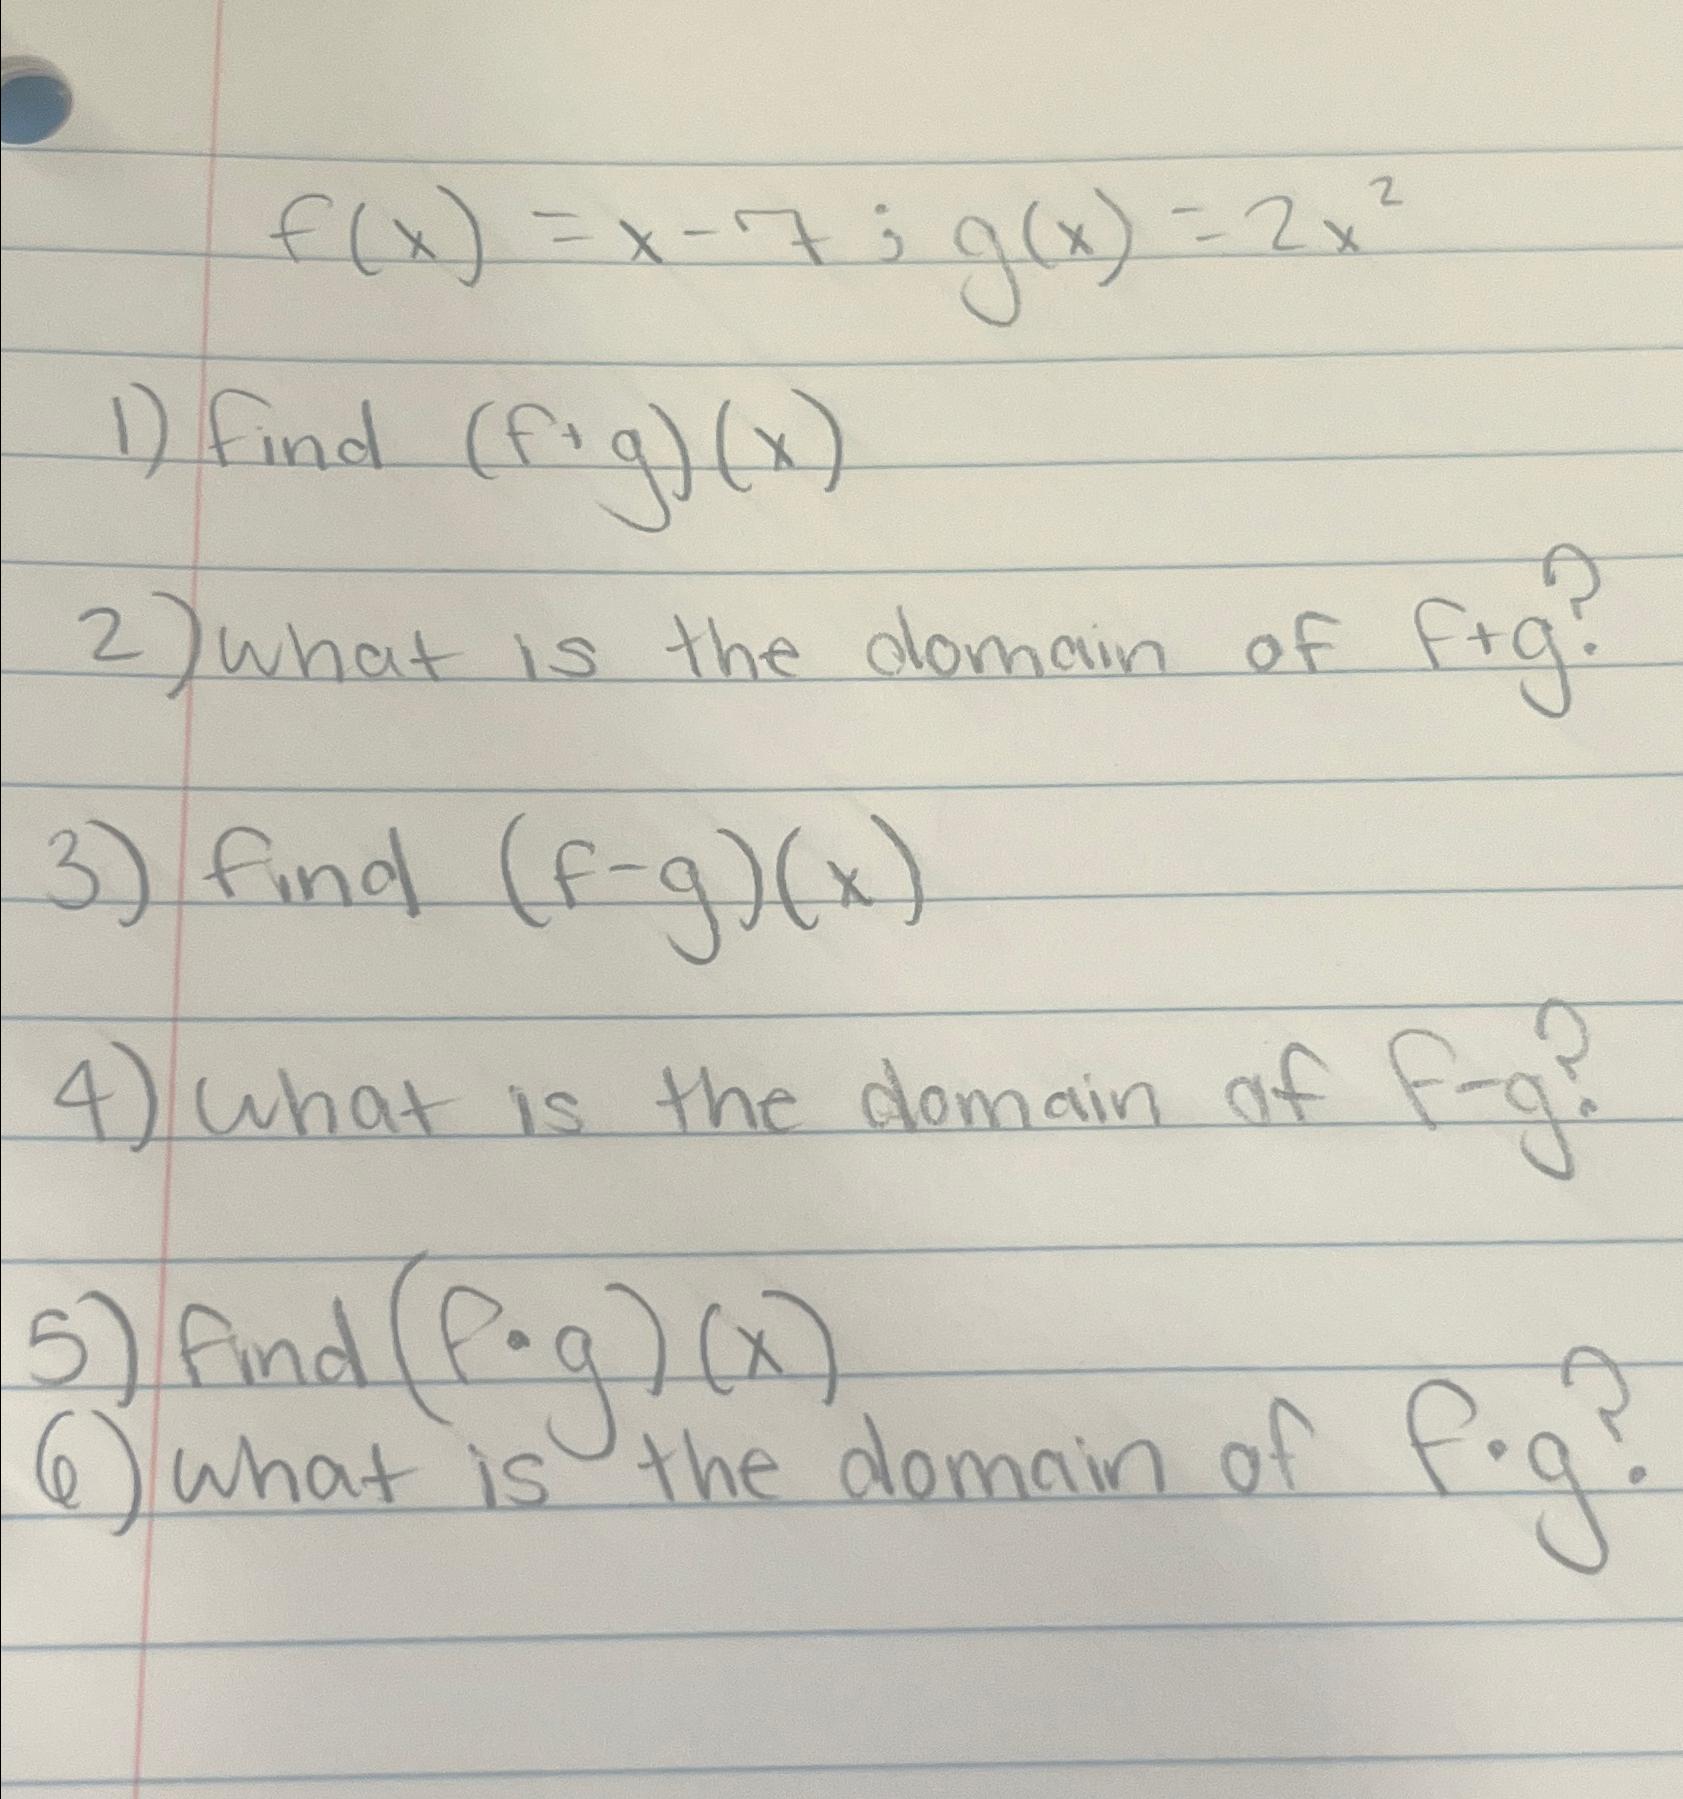 f(x) = x - 7 ; g(x) = 2x²
1) find (f+g)(x)
2) what is the domain of f+g?
3) find (f-g)(x)
4) what is the domain of f-g?
5) find (f•g)(x)
6) what is the domain of f•g?